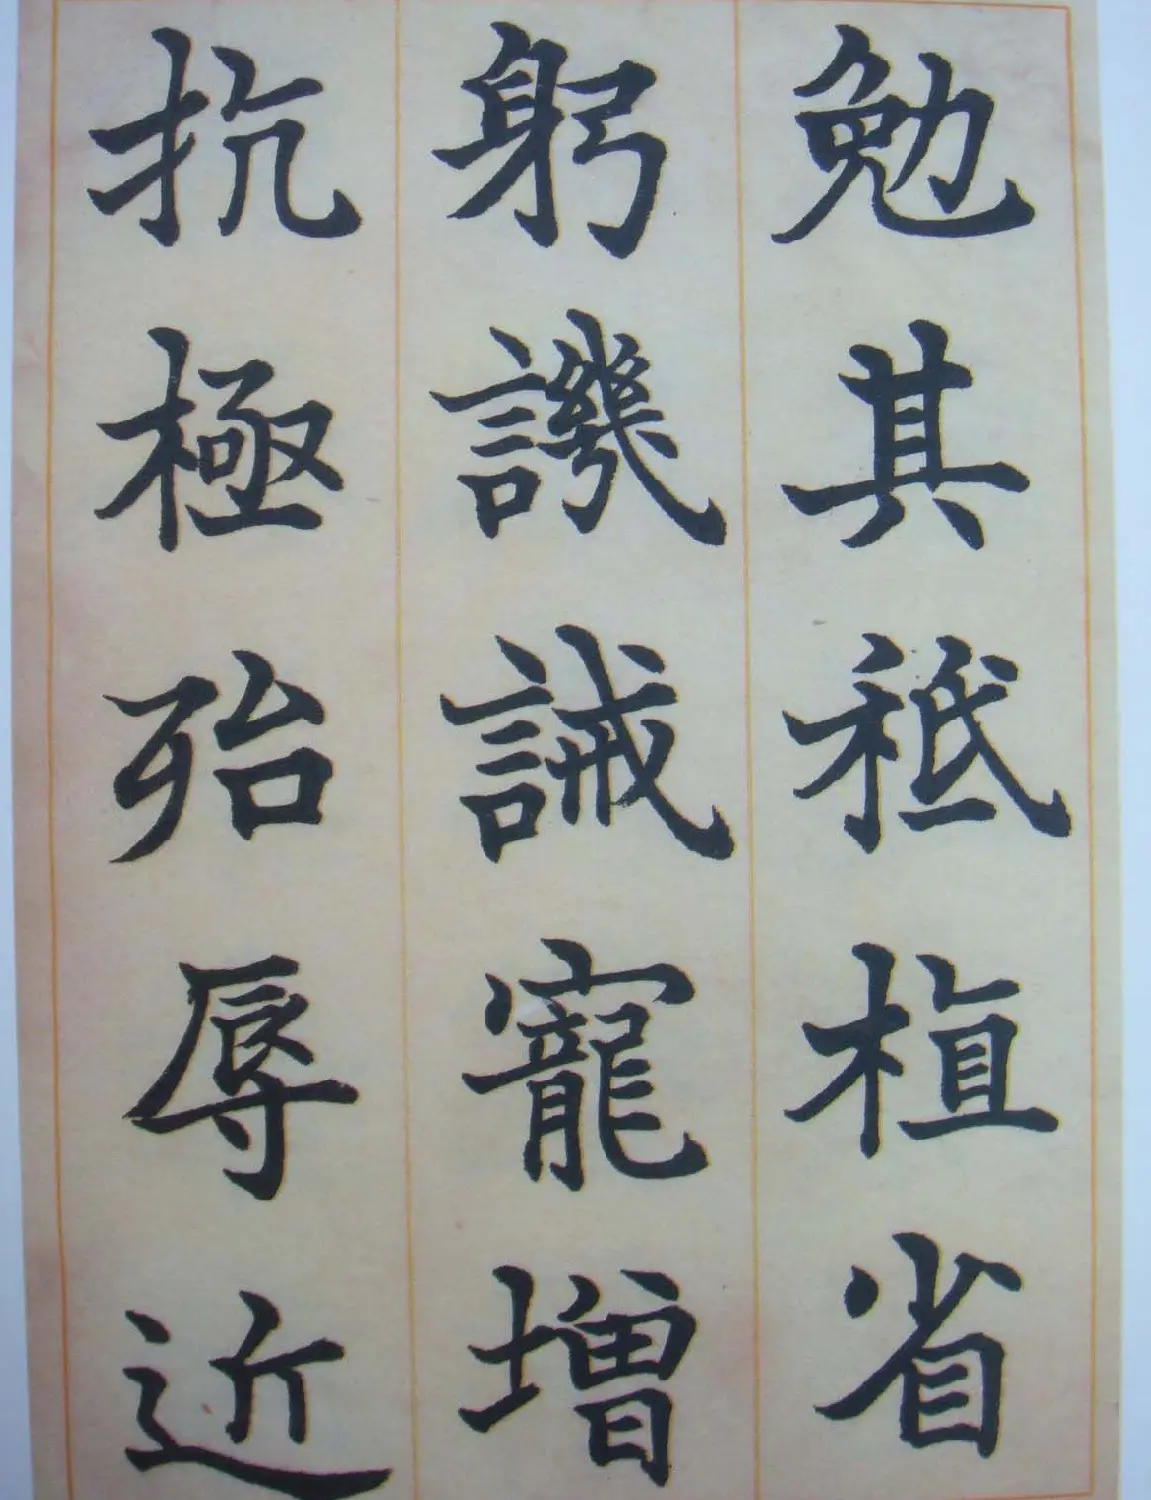 勉其祗植省
躬譏誡寵增
抗極殆辱近